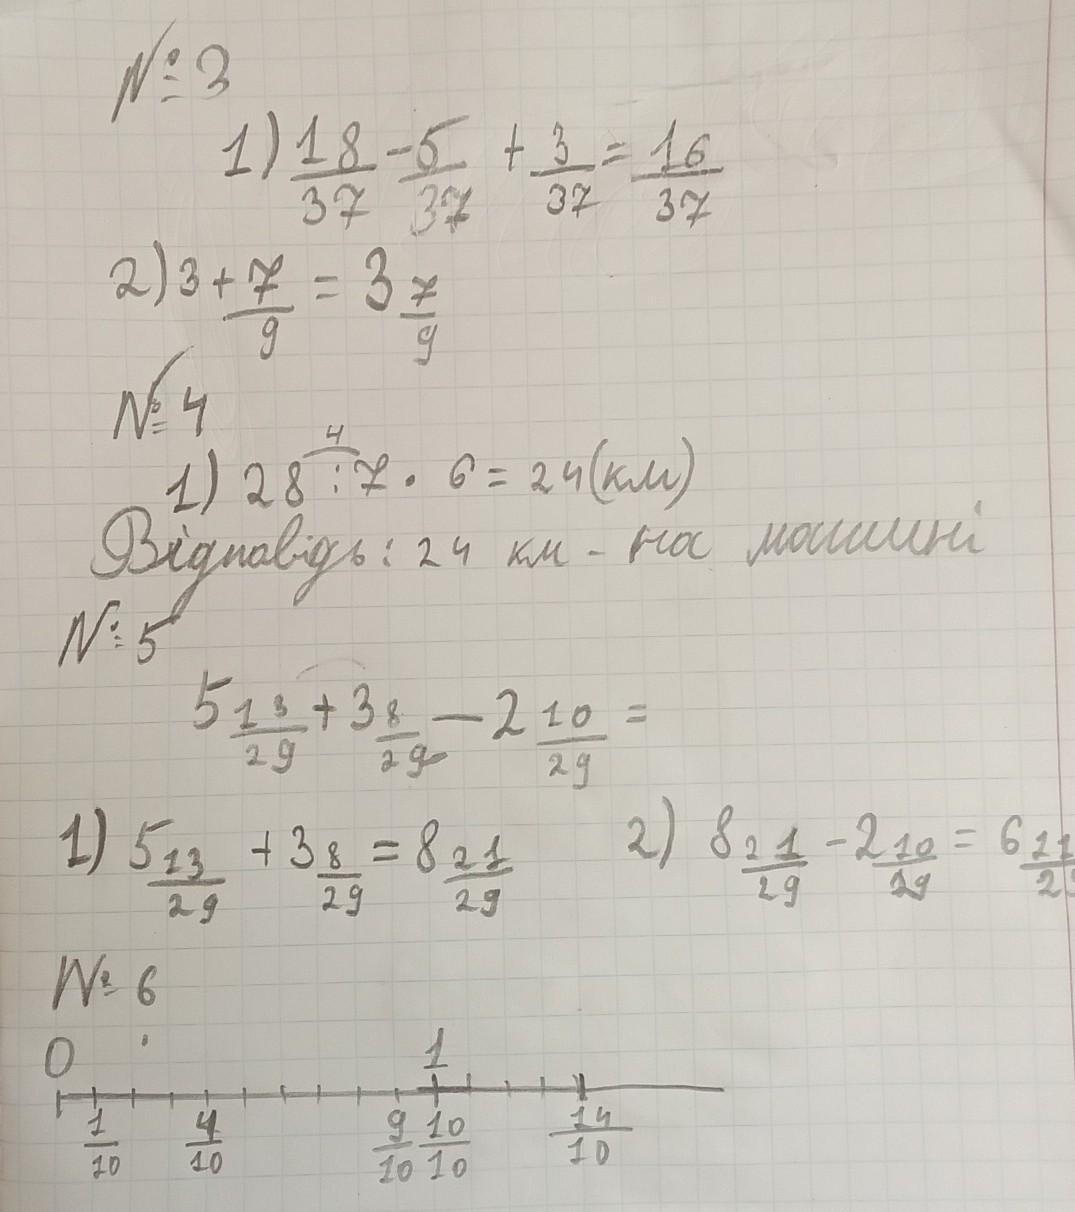 № 3
1) 18/37 - 5/37 + 3/37 = 16/37
2) 3 + 7/9 = 3 7/9
№ 4
4
1) 28 : 7 · 6 = 24 (км)
Відповідь: 24 км - на машині
№ 5
5 13/29 + 3 8/29 - 2 10/29 =
1) 5 13/29 + 3 8/29 = 8 21/29 2) 8 21/29 - 2 10/29 = 6 11/29
№ 6
0 1
1/10 4/10 9/10 10/10 14/10